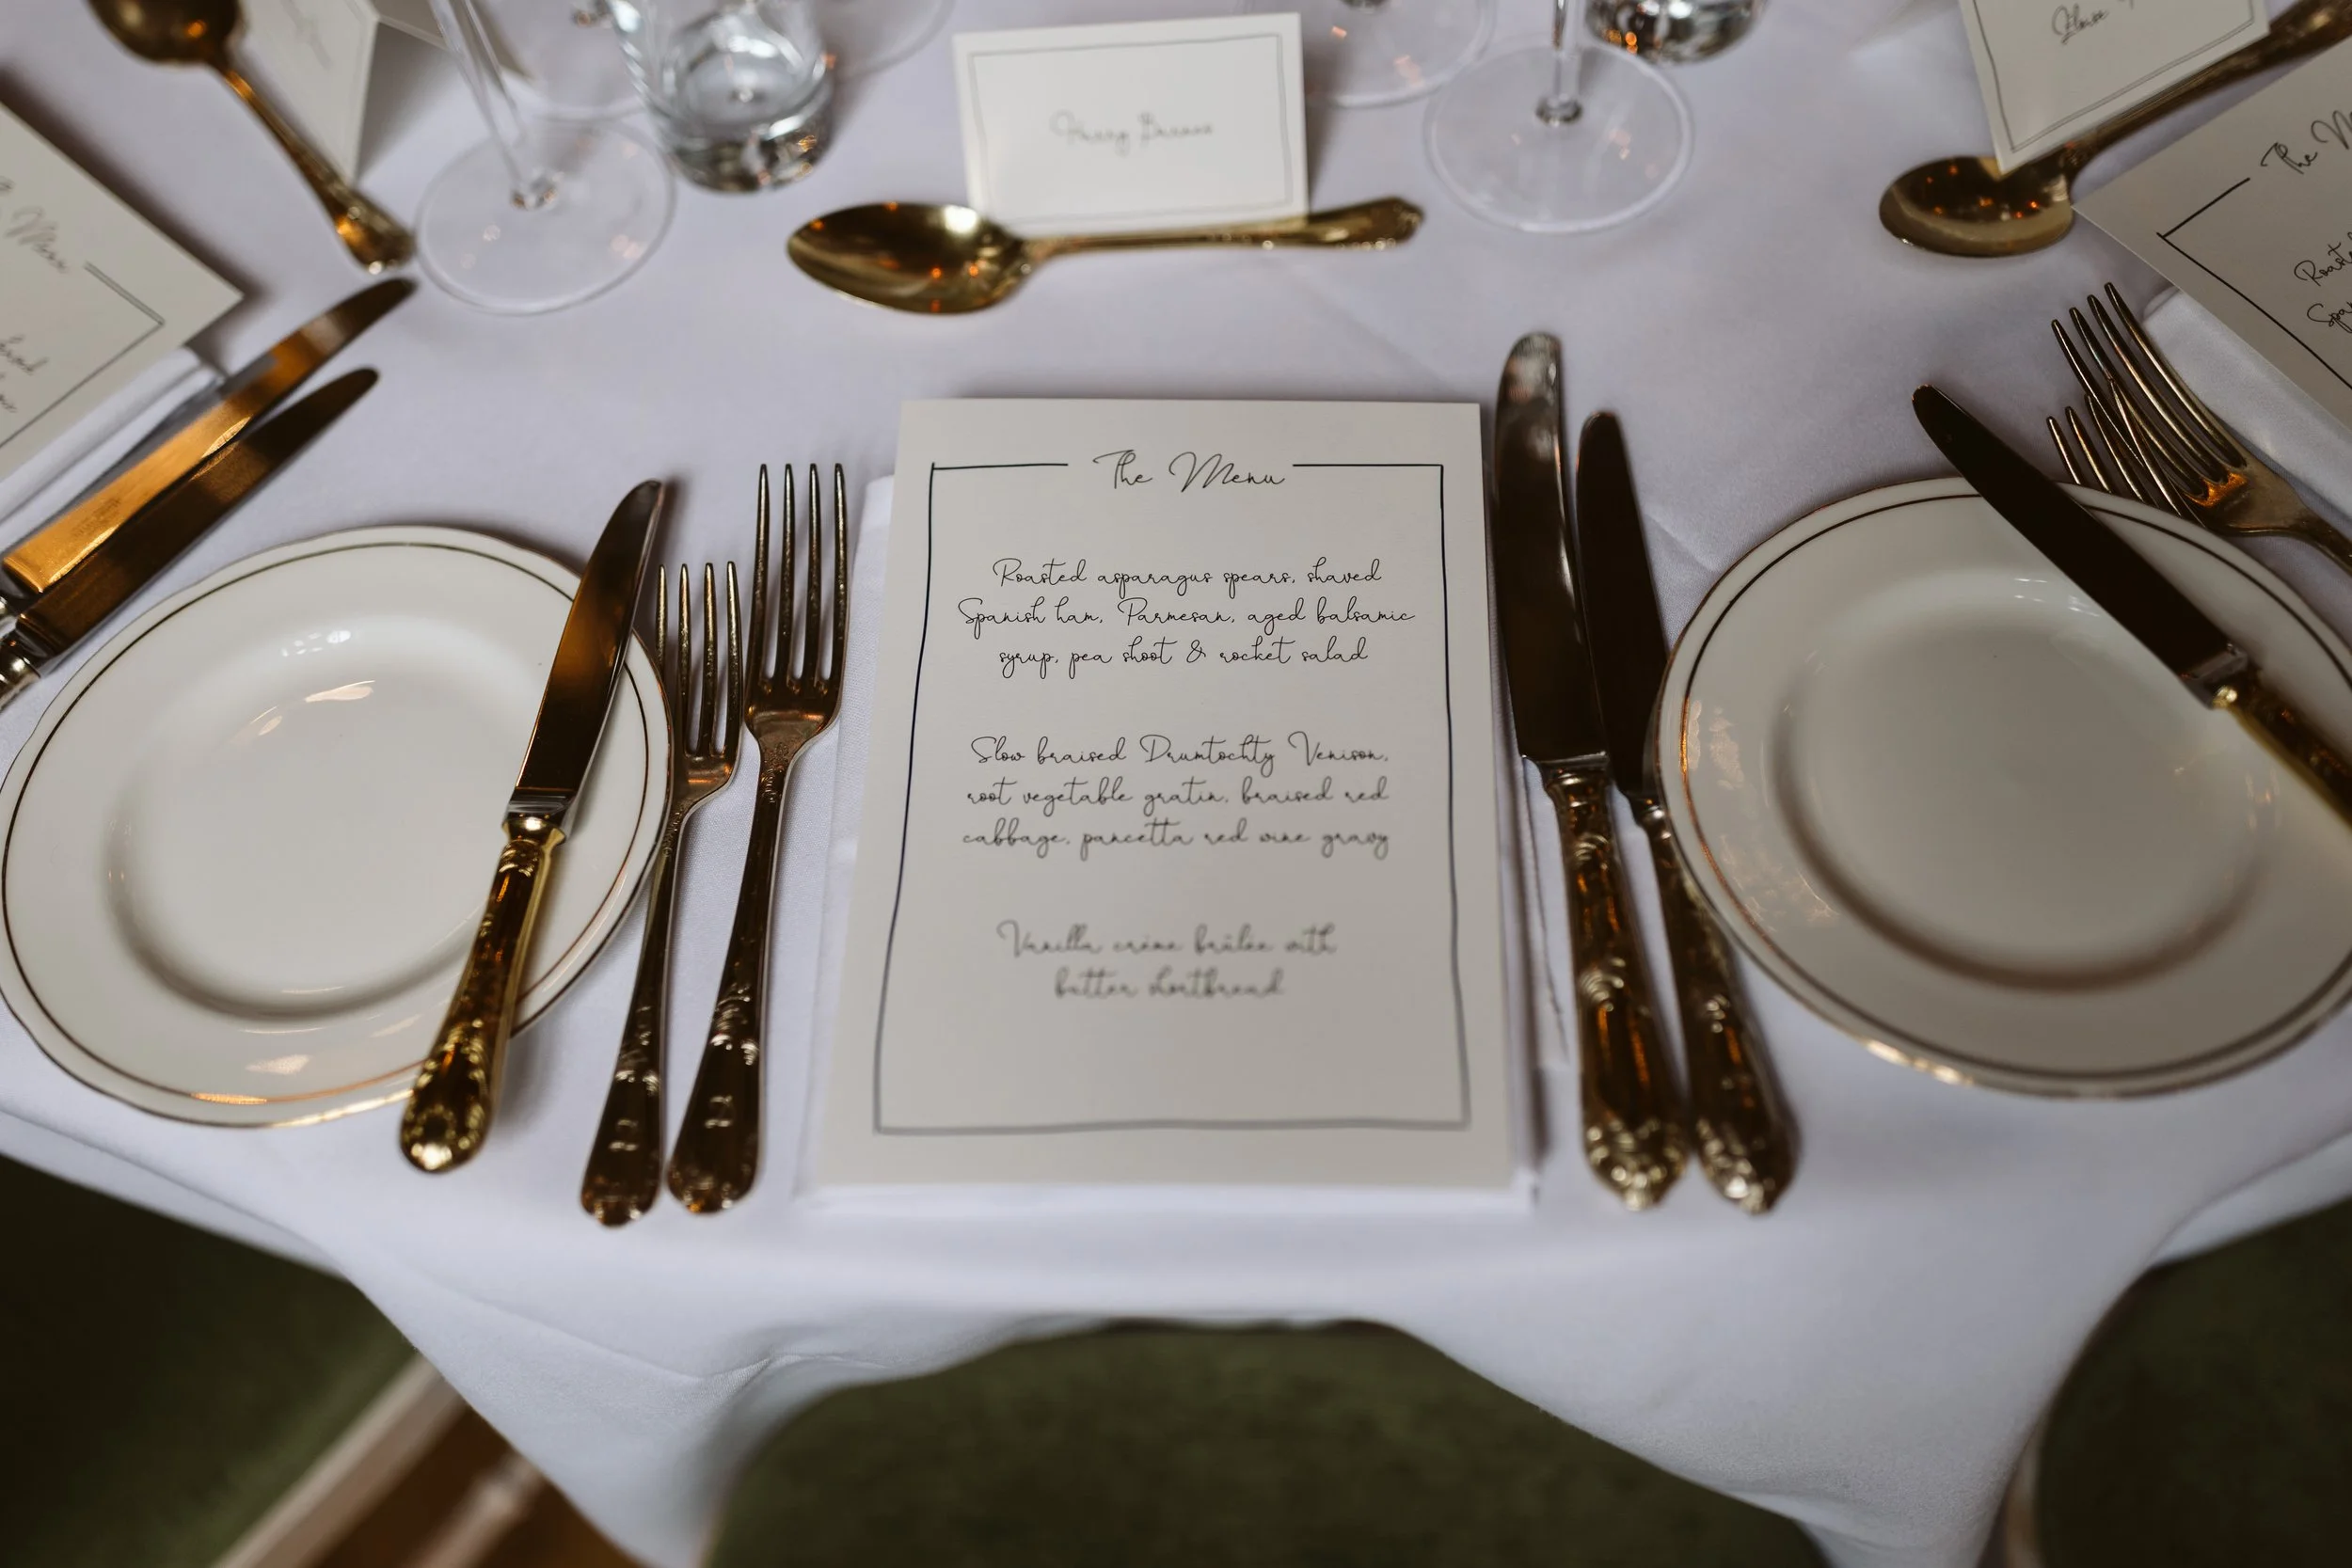 The Menu
Roasted asparagus spears, shaved
Spanish ham, Parmesan, aged balsamic
syrup, pea shoot & rocket salad
Slow braised Drumtochty Venison,
root vegetable gratin, braised red
cabbage, pancetta red wine gravy
Vanilla crème brûlée with
butter shortbread
The